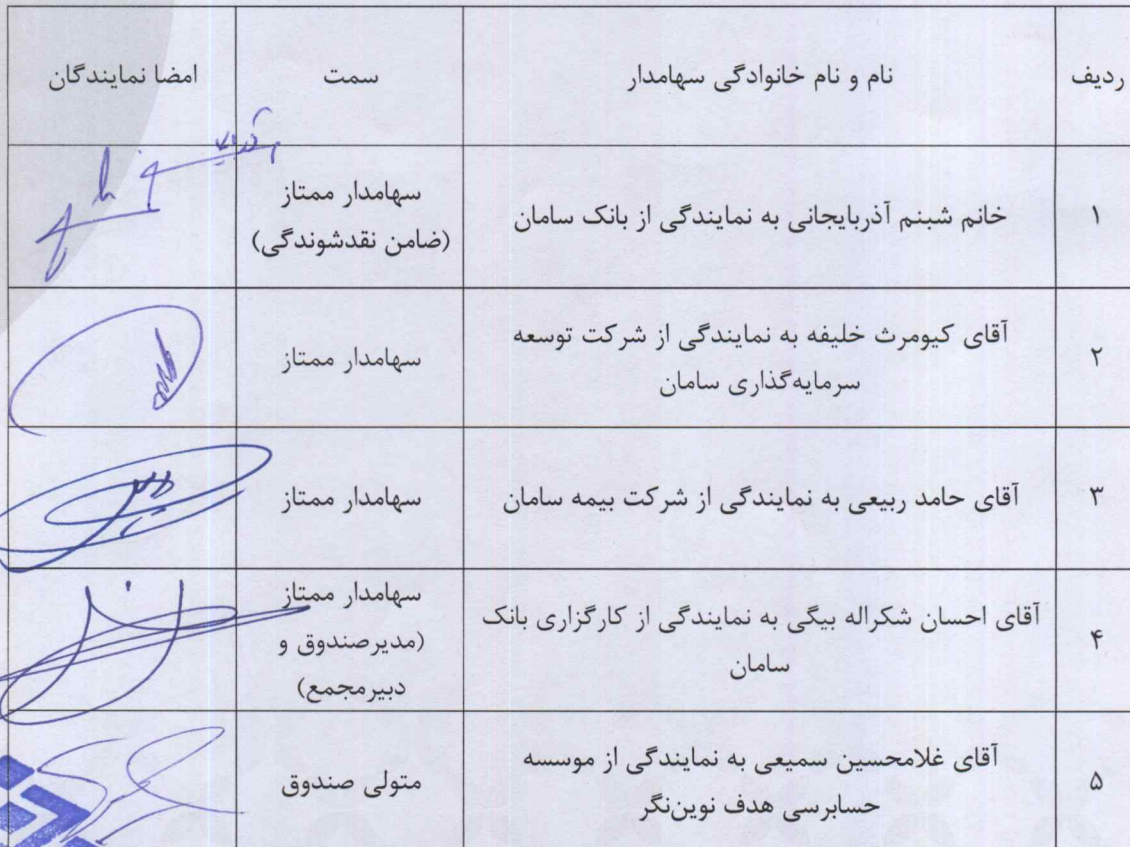 ردیف
نام و نام خانوادگی سهامدار
سمت
امضا نمایندگان
۱
خانم شبنم آذربایجانی به نمایندگی از بانک سامان
سهامدار ممتاز
(ضامن نقدشوندگی)
۲
آقای کیومرث خلیفه به نمایندگی از شرکت توسعه
سرمایه‌گذاری سامان
سهامدار ممتاز
۳
آقای حامد ربیعی به نمایندگی از شرکت بیمه سامان
سهامدار ممتاز
۴
آقای احسان شکراله بیگی به نمایندگی از کارگزاری بانک
سامان
سهامدار ممتاز
(مدیرصندوق و
دبیرمجمع)
۵
آقای غلامحسین سمیعی به نمایندگی از موسسه
حسابرسی هدف نوین‌نگر
متولی صندوق